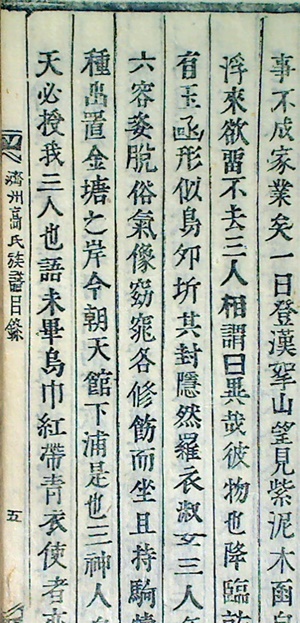 事不成家業矣一日登漢挐山望見紫泥木函自
浮來欲畱不去三人相謂曰異哉彼物也降臨
有玉凾形似鳥夘坼其封隱然羅衣淑女三人
六容姿脫俗氣像窈窕各修飭而坐且持駒
種出置金塘之岸今朝天館下浦是也三神人
天必授我三人也語未畢烏巾紅帶青衣使者
濟州高氏族譜目錄
五